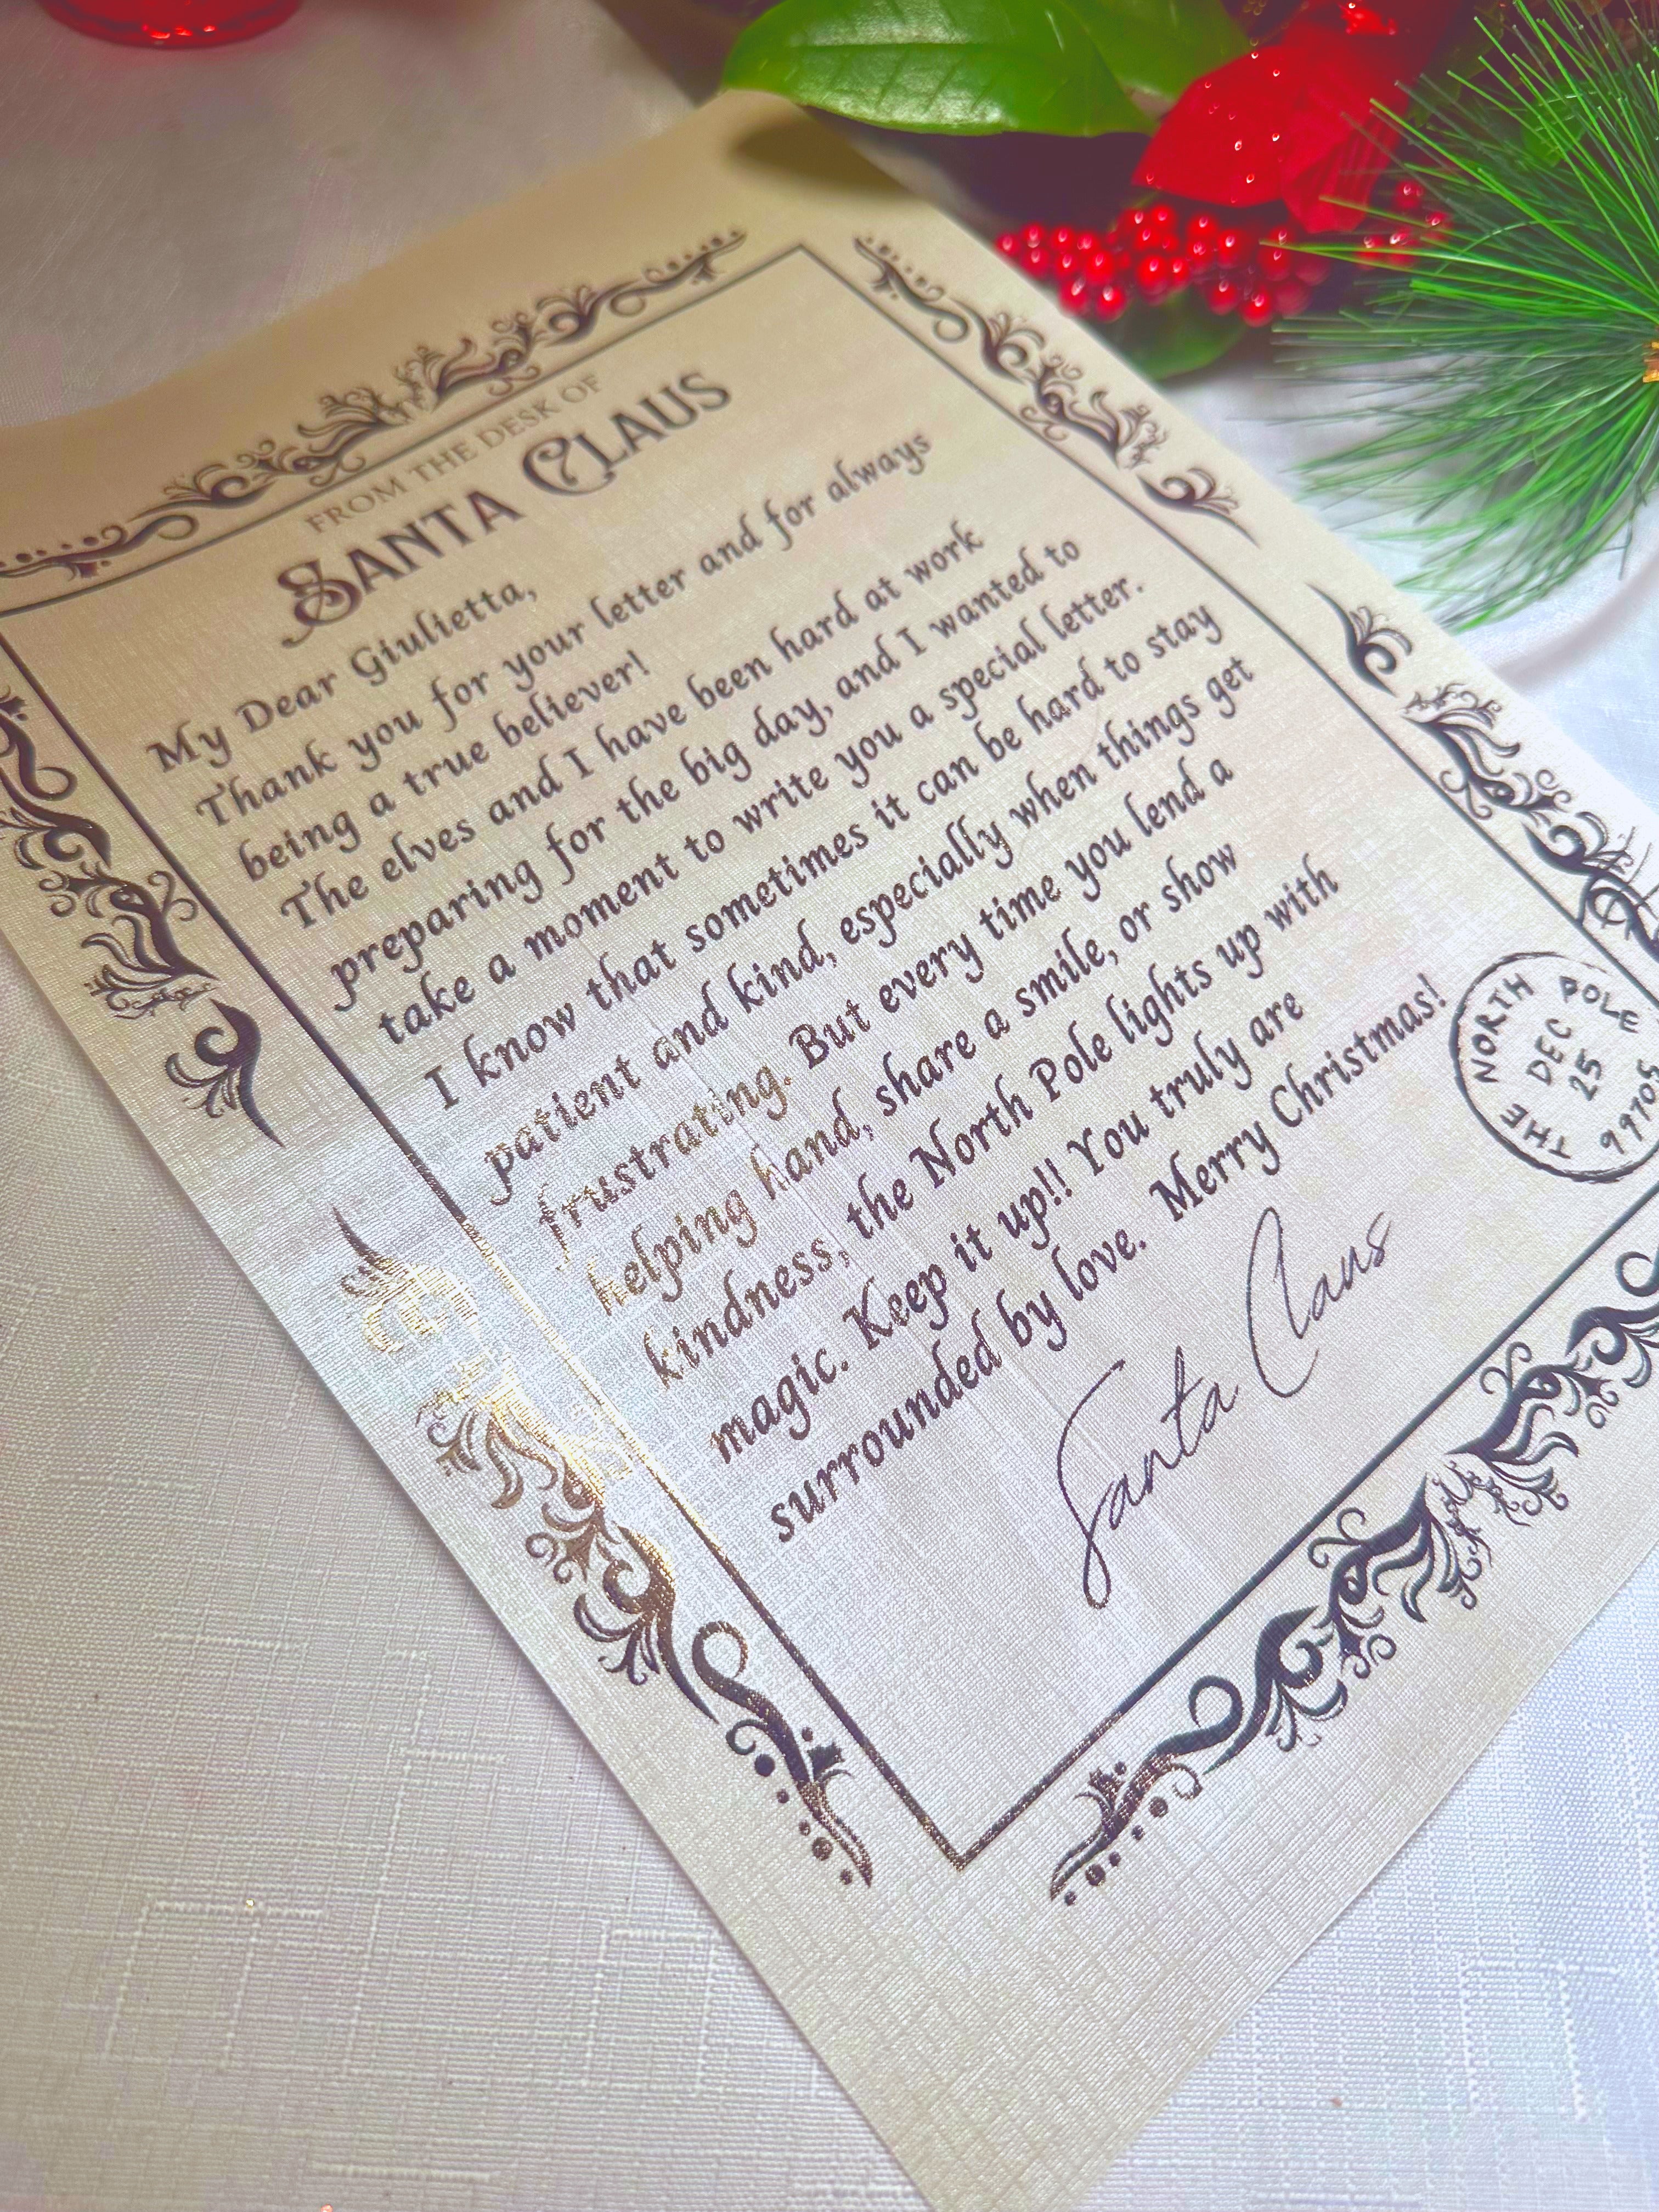 FROM THE DESK OF
SANTA CLAUS
My Dear Giulietta,
Thank you for your letter and for always
being a true believer!
The elves and I have been hard at work
preparing for the big day, and I wanted to
take a moment to write you a special letter.
I know that sometimes it can be hard to stay
patient and kind, especially when things get
frustrating. But every time you lend a
helping hand, share a smile, or show
kindness, the North Pole lights up with
magic. Keep it up!! You truly are
surrounded by love. Merry Christmas!
Santa Claus
THE NORTH POLE
DEC
25
99705